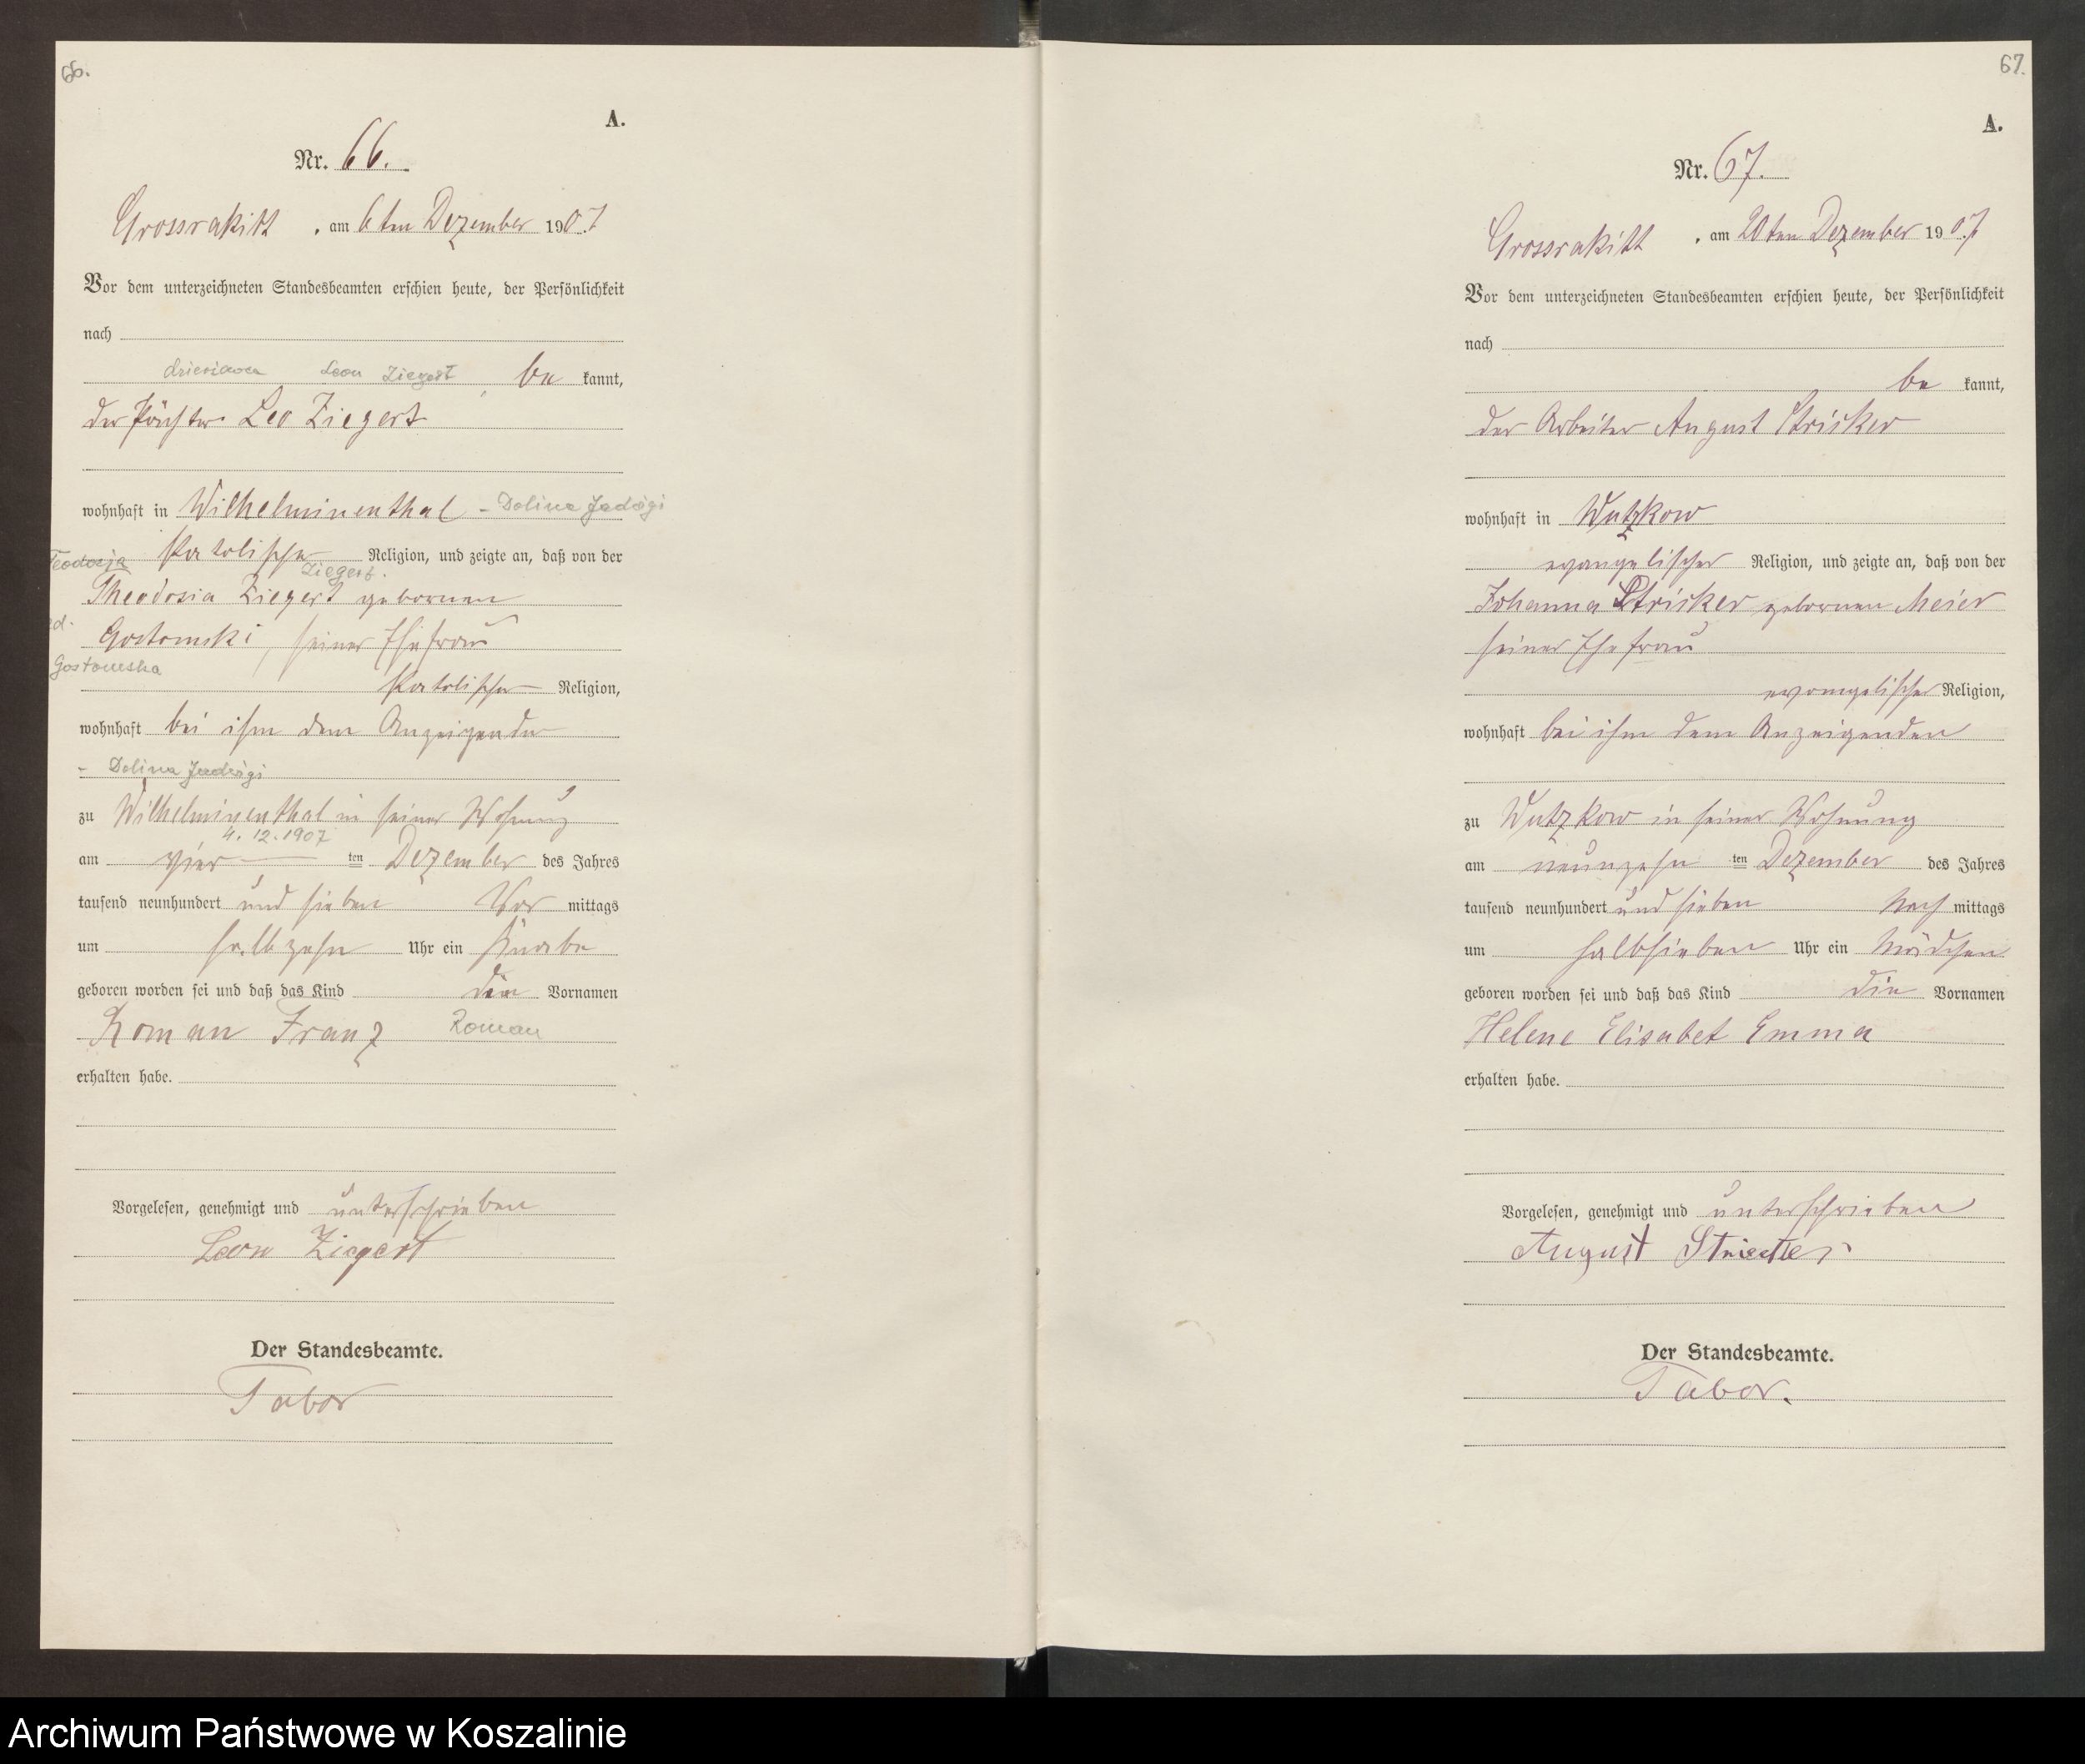 66.
A.
Nr. 66.
Grossrakitt, am 6ten Dezember 1907
Vor dem unterzeichneten Standesbeamten erschien heute, der Persönlichkeit
nach
Leon Ziegert
be kannt,
der Pächter Leo Ziegert
wohnhaft in Wilhelminenthal - Dolina Jadwigi
Katolischer Religion, und zeigte an, daß von der
Teodozja
Ziegert.
Theodosia Ziegert gebornen
Gostomski, seiner Ehefrau
Gostomska
Katolischer Religion,
wohnhaft bei ihm dem Anzeigender
- Dolina Jadwigi
zu Wilhelminenthal in seiner Wohnung
4.12.1907
am vier ten Dezember des Jahres
tausend neunhundert und sieben Vor mittags
um halb zehn Uhr ein Knabe
geboren worden sei und daß das Kind den Vornamen
Roman Franz Roman
erhalten habe.
Vorgelesen, genehmigt und unterschrieben
Leon Ziegert
Der Standesbeamte.
Tabor
67.
A.
Nr. 67.
Grossrakitt, am 20ten Dezember 1907
Vor dem unterzeichneten Standesbeamten erschien heute, der Persönlichkeit
nach
be kannt,
der Arbeiter August Stricker
wohnhaft in Wutzkow
evangelischer Religion, und zeigte an, daß von der
Johanna Stricker gebornen Meier
seiner Ehefrau
evangelischer Religion,
wohnhaft bei ihm dem Anzeigenden
zu Wutzkow in seiner Wohnung
am neunzehn ten Dezember des Jahres
tausend neunhundert und sieben Nach mittags
um halb sieben Uhr ein Mädchen
geboren worden sei und daß das Kind die Vornamen
Helene Elisabet Emma
erhalten habe.
Vorgelesen, genehmigt und unterschrieben
August Stricker
Der Standesbeamte.
Tabor.
Archiwum Państwowe w Koszalinie